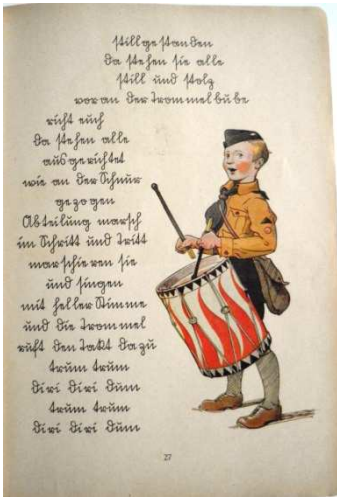 stillgestanden
da stehen sie alle
still und stolz
voran der Trommelbube
richt euch
da stehen alle
ausgerichtet
wie an der Schnur
gezogen
Abteilung marsch
im Schritt und Tritt
marschieren sie
und singen
mit heller Stimme
und die Trommel
ruft den Takt dazu
trum trum
diri diri dum
trum trum
diri diri dum
27